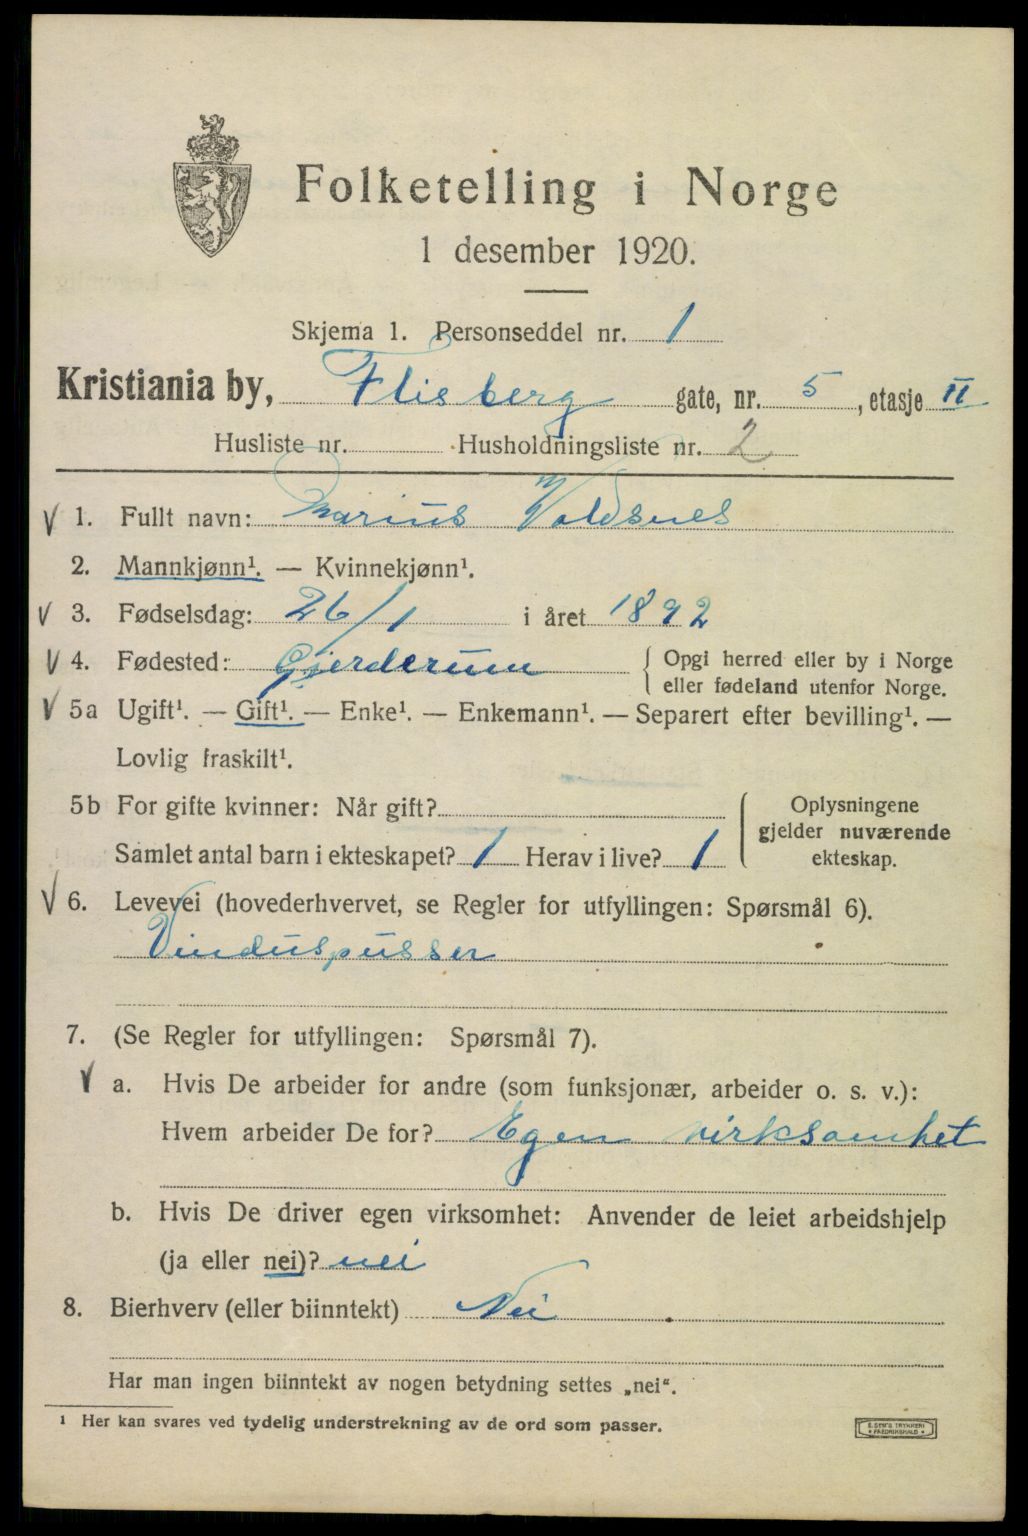 Folketelling i Norge
1 desember 1920.
Skjema 1. Personseddel nr. 1
Kristiania by, Flisberg gate, nr. 5, etasje II
Husliste nr. Husholdningsliste nr. 2
1. Fullt navn: Marius Voldsnes
2. Mannkjønn¹. — Kvinnekjønn¹.
3. Fødselsdag: 26/1 i året 1892
4. Fødested: Gjerderum { Opgi herred eller by i Norge
eller fødeland utenfor Norge.
5a Ugift¹. — Gift¹. — Enke¹. — Enkemann¹. — Separert efter bevilling¹. —
Lovlig fraskilt¹.
5b For gifte kvinner: Når gift? { Oplysningene
gjelder nuværende
Samlet antal barn i ekteskapet? 1 Herav i live? 1 ekteskap.
6. Levevei (hovederhvervet, se Regler for utfyllingen: Spørsmål 6).
Vinduspusser
7. (Se Regler for utfyllingen: Spørsmål 7).
a. Hvis De arbeider for andre (som funksjonær, arbeider o. s. v.):
Hvem arbeider De for? Egen virksomhet
b. Hvis De driver egen virksomhet: Anvender de leiet arbeidshjelp
(ja eller nei)? nei
8. Bierhverv (eller biinntekt) Nei
Har man ingen biinntekt av nogen betydning settes „nei“.
¹ Her kan svares ved tydelig understrekning av de ord som passer.
E. SEM'S TRYKKERI
• FREDRIKSHALD •